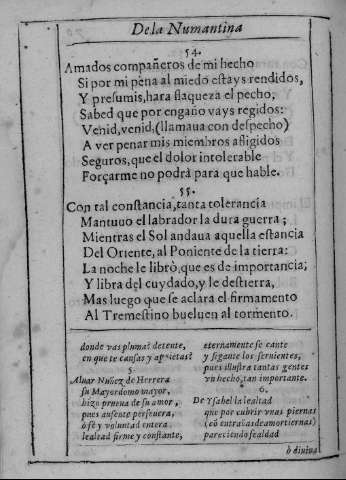 De la Numantina
54.
Amados compañeros de mi hecho
Si por mi pena al miedo estays rendidos,
Y presumis, hara flaqueza el pecho,
Sabed que por engaño vays regidos:
Venid, venid, (llamaua con despecho)
A ver penar mis miembros afligidos
Seguros, que el dolor intolerable
Forçarme no podrà para que hable.
55.
Con tal constancia, tanta tolerancia
Mantuuo el labrador la dura guerra;
Mientras el Sol andaua aquella estancia
Del Oriente, al Poniente de la tierra:
La noche le librò, que es de importancia;
Y libra del cuydado, y le destierra,
Mas luego que se aclara el firmamento
Al Tremestino bueluen al tormento.
donde vas pluma? detente,
en que te cansas y aprietas?
5.
Aluar Nuñez de Herrera
su Mayordomo mayor,
hizo prueua de su amor,
pues ausente perseuera,
ò fè y voluntad entera
lealtad firme y constante,
eternamente se cante
y sigante los siruientes,
pues illustra tantas gentes
vn hecho tan importante.
6.
De Ysabel la lealtad
que por cubrir vnas piernas
(cõ entrañas de amor tiernas)
pareciendo fealdad
ò diuina